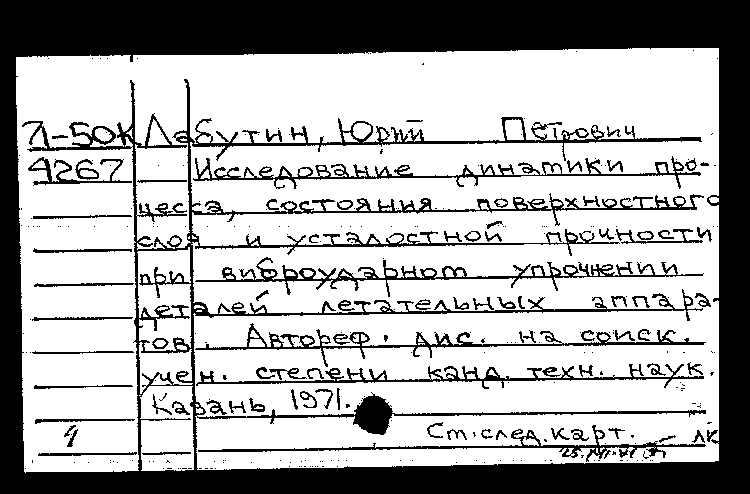 Л-50К Лабутин, Юрий Петрович
4267 Исследование динамики про-
цесса, состояния поверхностного
слоя и усталостной прочности
при виброударном упрочнении
деталей летательных аппара-
тов. Автореф. дис. на соиск.
учен. степени канд. техн. наук.
Казань, 1971.
Ст. след. карт. ЛК